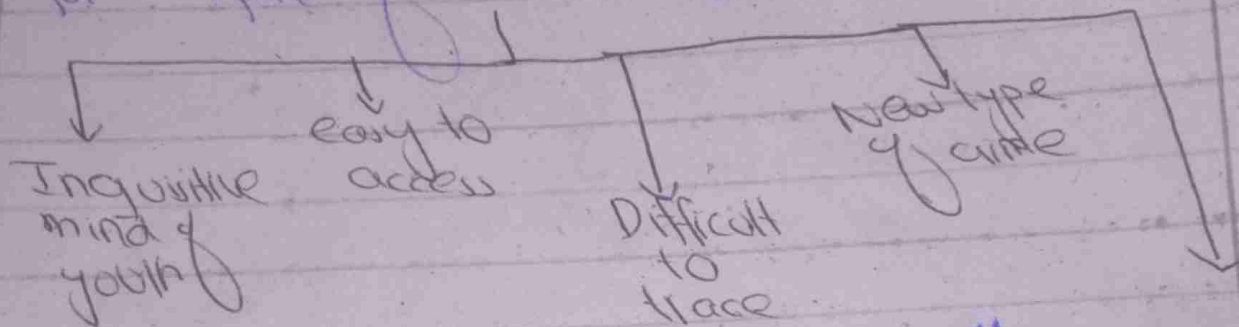 Inquisitive
mind of
youth
easy to
access
Difficult
to
trace
New type
of crime